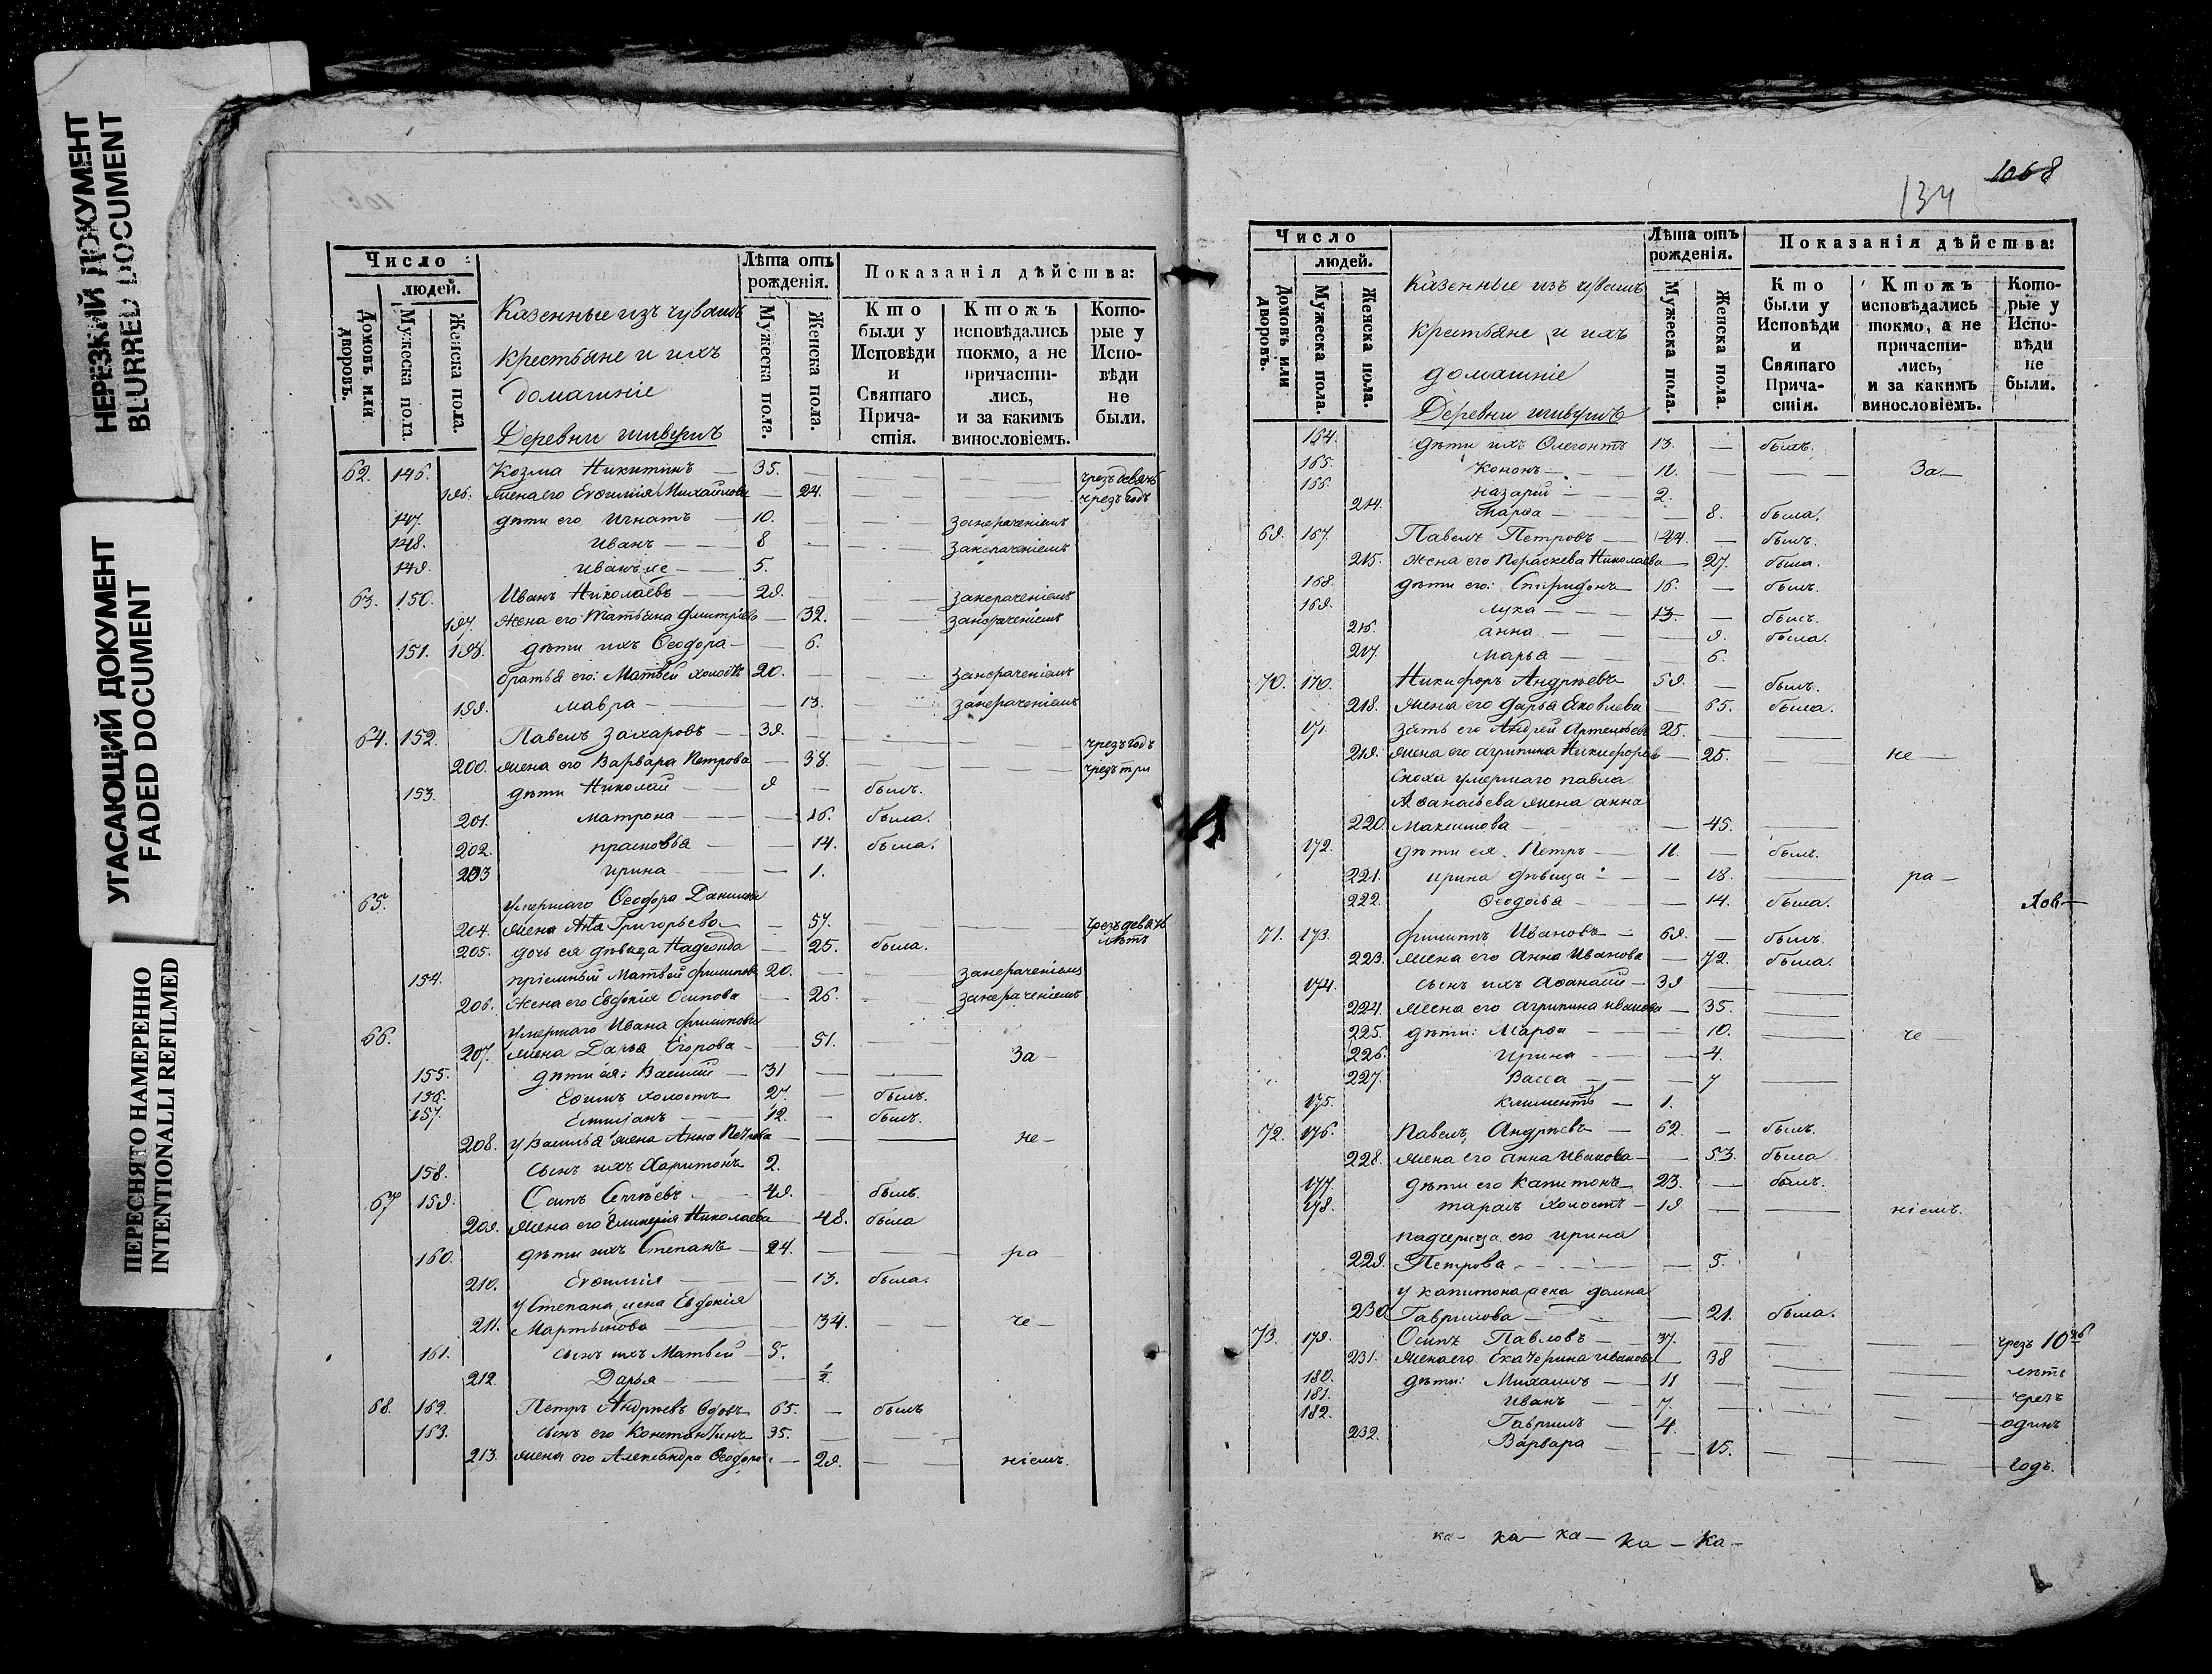 НЕРЕЗКИЙ ДОКУМЕНТ
BLURRED DOCUMENT
УГАСАЮЩИЙ ДОКУМЕНТ
FADED DOCUMENT
ПЕРЕСНЯТО НАМЕРЕННО
INTENTIONALLI REFILMED
Число
людей.
Домовъ или дворовъ.
Мужеска пола.
Женска пола.
Казенные изъ чувашъ
крестьяне и ихъ
домашніе
Деревни
Лѣта отъ рожденія.
Мужеска пола.
Женска пола.
Показанія дѣйства:
Кто были у Исповѣди и Святаго Прича-стія.
Ктожъ исповѣдались токмо, а не причасти-лись, и за какимъ винословіемъ.
Кото-рые у Испо-вѣди не были.
62. 146. Козма Никитинъ — 35. — чрезъ
196. жена его Евфимія Михайлова — 24. чрезъ годъ
147. дѣти его Игнатъ — 10. занераченіемъ
148. Иванъ — 8 занераченіемъ
149. Иванъ же — 5.
63. 150. Иванъ Николаевъ — 29. занераченіемъ
197. жена его Татьяна Дмитріев — 32. занераченіемъ
151. 198. дѣти ихъ Феодора — 6.
братья его: Матвей холостъ 20. занераченіемъ
199. Мавра — 13. занераченіемъ
64. 152. Павелъ Захаровъ — 39. чрезъ годъ
200. жена его Варвара Петрова — 38. чрезъ три
153. дѣти Николай — 9 — былъ.
201. Матрона — 16. была.
202. — 14. была.
203 Ирина — 1.
65. Умершаго Феодора
204. жена Григорьева — 57. чрезъ девять
205. дочь ея дѣвица — 25. была. лѣтъ
154. пріемный Матвей Филипов 20. занераченіемъ
206. Жена его Евдокія Осипова — 26. занераченіемъ
66. Умершаго Ивана Филипова
207. жена Дарья Егорова — 51. За —
155. дѣти ея: Василій — 31
156. Ефимъ холостъ — 27. — былъ.
157. Емиліанъ — 12. — былъ.
208. у Василья жена Анна Петрова — не —
158. сынъ ихъ Харитонъ 2.
67 159. Осипъ 49. былъ.
209. жена его Гликерія Николаева 48. была
160. дѣти ихъ Степанъ — 24. — ра
210. Евфимія — 13. была.
у Степана жена Евдокія
211. Мартынова — 34. че —
161. сынъ ихъ Матвей — 5.
212. Дарья — 1/2
68. 162. Петръ Андреевъ вдовъ 65. — былъ
163. сынъ его Константинъ 35.
213. жена его Александра Феодоро — 29. ніемъ.
1068
134
Число
людей.
Домовъ или дворовъ.
Мужеска пола.
Женска пола.
Казенные изъ чувашъ
крестьяне и ихъ
домашніе
Деревни
Лѣта отъ рожденія.
Мужеска пола.
Женска пола.
Показанія дѣйства:
Кто были у Исповѣди и Святаго Прича-стія.
Ктожъ исповѣдались токмо, а не причасти-лись, и за какимъ винословіемъ.
Кото-рые у Испо-вѣди не были.
164. дѣти ихъ 13. — былъ.
165. Кононъ — 11. За —
166. Назарій — 2.
214. Марфа — 8. была.
69. 167. Павелъ Петровъ — 44. — былъ.
215. жена его Параскева Николаева — 27. была.
168. дѣти его: Спиридонъ 16. — былъ.
169. Лука — 13. — былъ.
216. Анна — 9. была.
217. Марья — 6.
70. 170. Никифоръ Андреевъ 59. — былъ.
218. жена его Дарья Яковлева — 65. была.
171. зять его Андрей Артемьевъ 25.
219. жена его Агрипина Никифоров — 25. не —
Сноха умершаго Павла
Афанасьева жена Анна
220. Максимова — 45.
172. дѣти ея. Петръ — 11. — былъ.
221. Ирина дѣвица — 18. ра —
222. Феодосья — 14. была. Хов —
71. 173. Филиппъ Ивановъ — 69. — былъ.
223. жена его Анна Иванова — 72. была.
174. сынъ ихъ Афанасій — 39
224. жена его Агрипина Иванова — 35.
225. дѣти: Марфа — 10. че —
226. Ирина — 4.
227. Васса — 7
175. Климентъ — 1.
72. 176. Павелъ Андреевъ — 62. — былъ.
228. жена его Анна Иванова — 53. была
177. дѣти его Капитонъ 23. — былъ.
178. Тарасъ холостъ — 19 — ніемъ.
падчерица его Ирина
229. Петрова — 5.
у Капитона жена Домна
230 Гаврилова — 21. была.
73. 179. Осипъ Павловъ — 37. чрезъ 10ть
231. жена его Екатерина Иванова 38 лѣтъ
180. дѣти: Михаилъ — 11
181. Иванъ — 7. чрезъ
182. Гаврилъ — 4. одинъ
232. Варвара — 15. годъ.
ка — ка — ка — ка — ка —